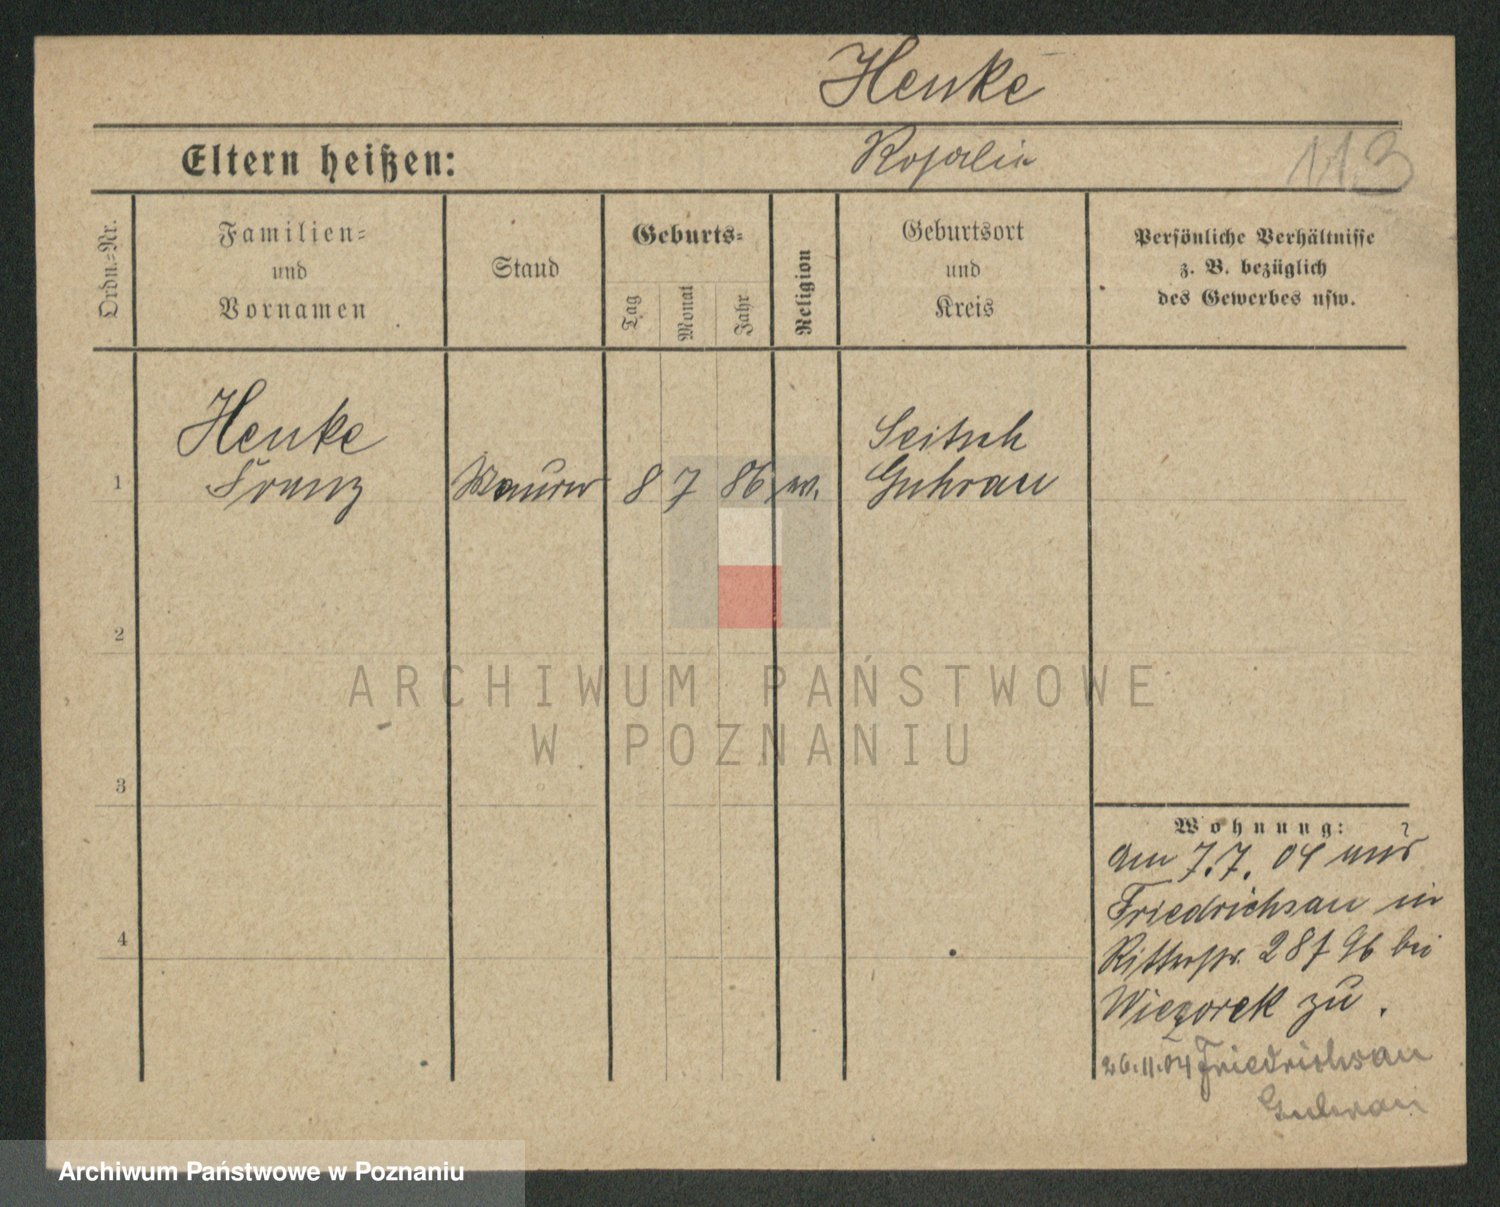 Henke
Eltern heißen:
Rosalie
113
Ordn.-Nr.
Familien-
und
Vornamen
Stand
Geburts-
Tag
Monat
Jahr
Religion
Geburtsort
und
Kreis
Persönliche Verhältnisse
z. B. bezüglich
des Gewerbes usw.
1
Henke
Franz
Maurer
8
7
86
Seitsch
Guhrau
2
3
4
Wohnung:
am 7.7. 04 aus
Friedrichsau in
Ritterstr. 28 bei
Wiezorek zu.
26.11.04 Friedrichsau
Guhrau
ARCHIWUM PAŃSTWOWE
W POZNANIU
Archiwum Państwowe w Poznaniu